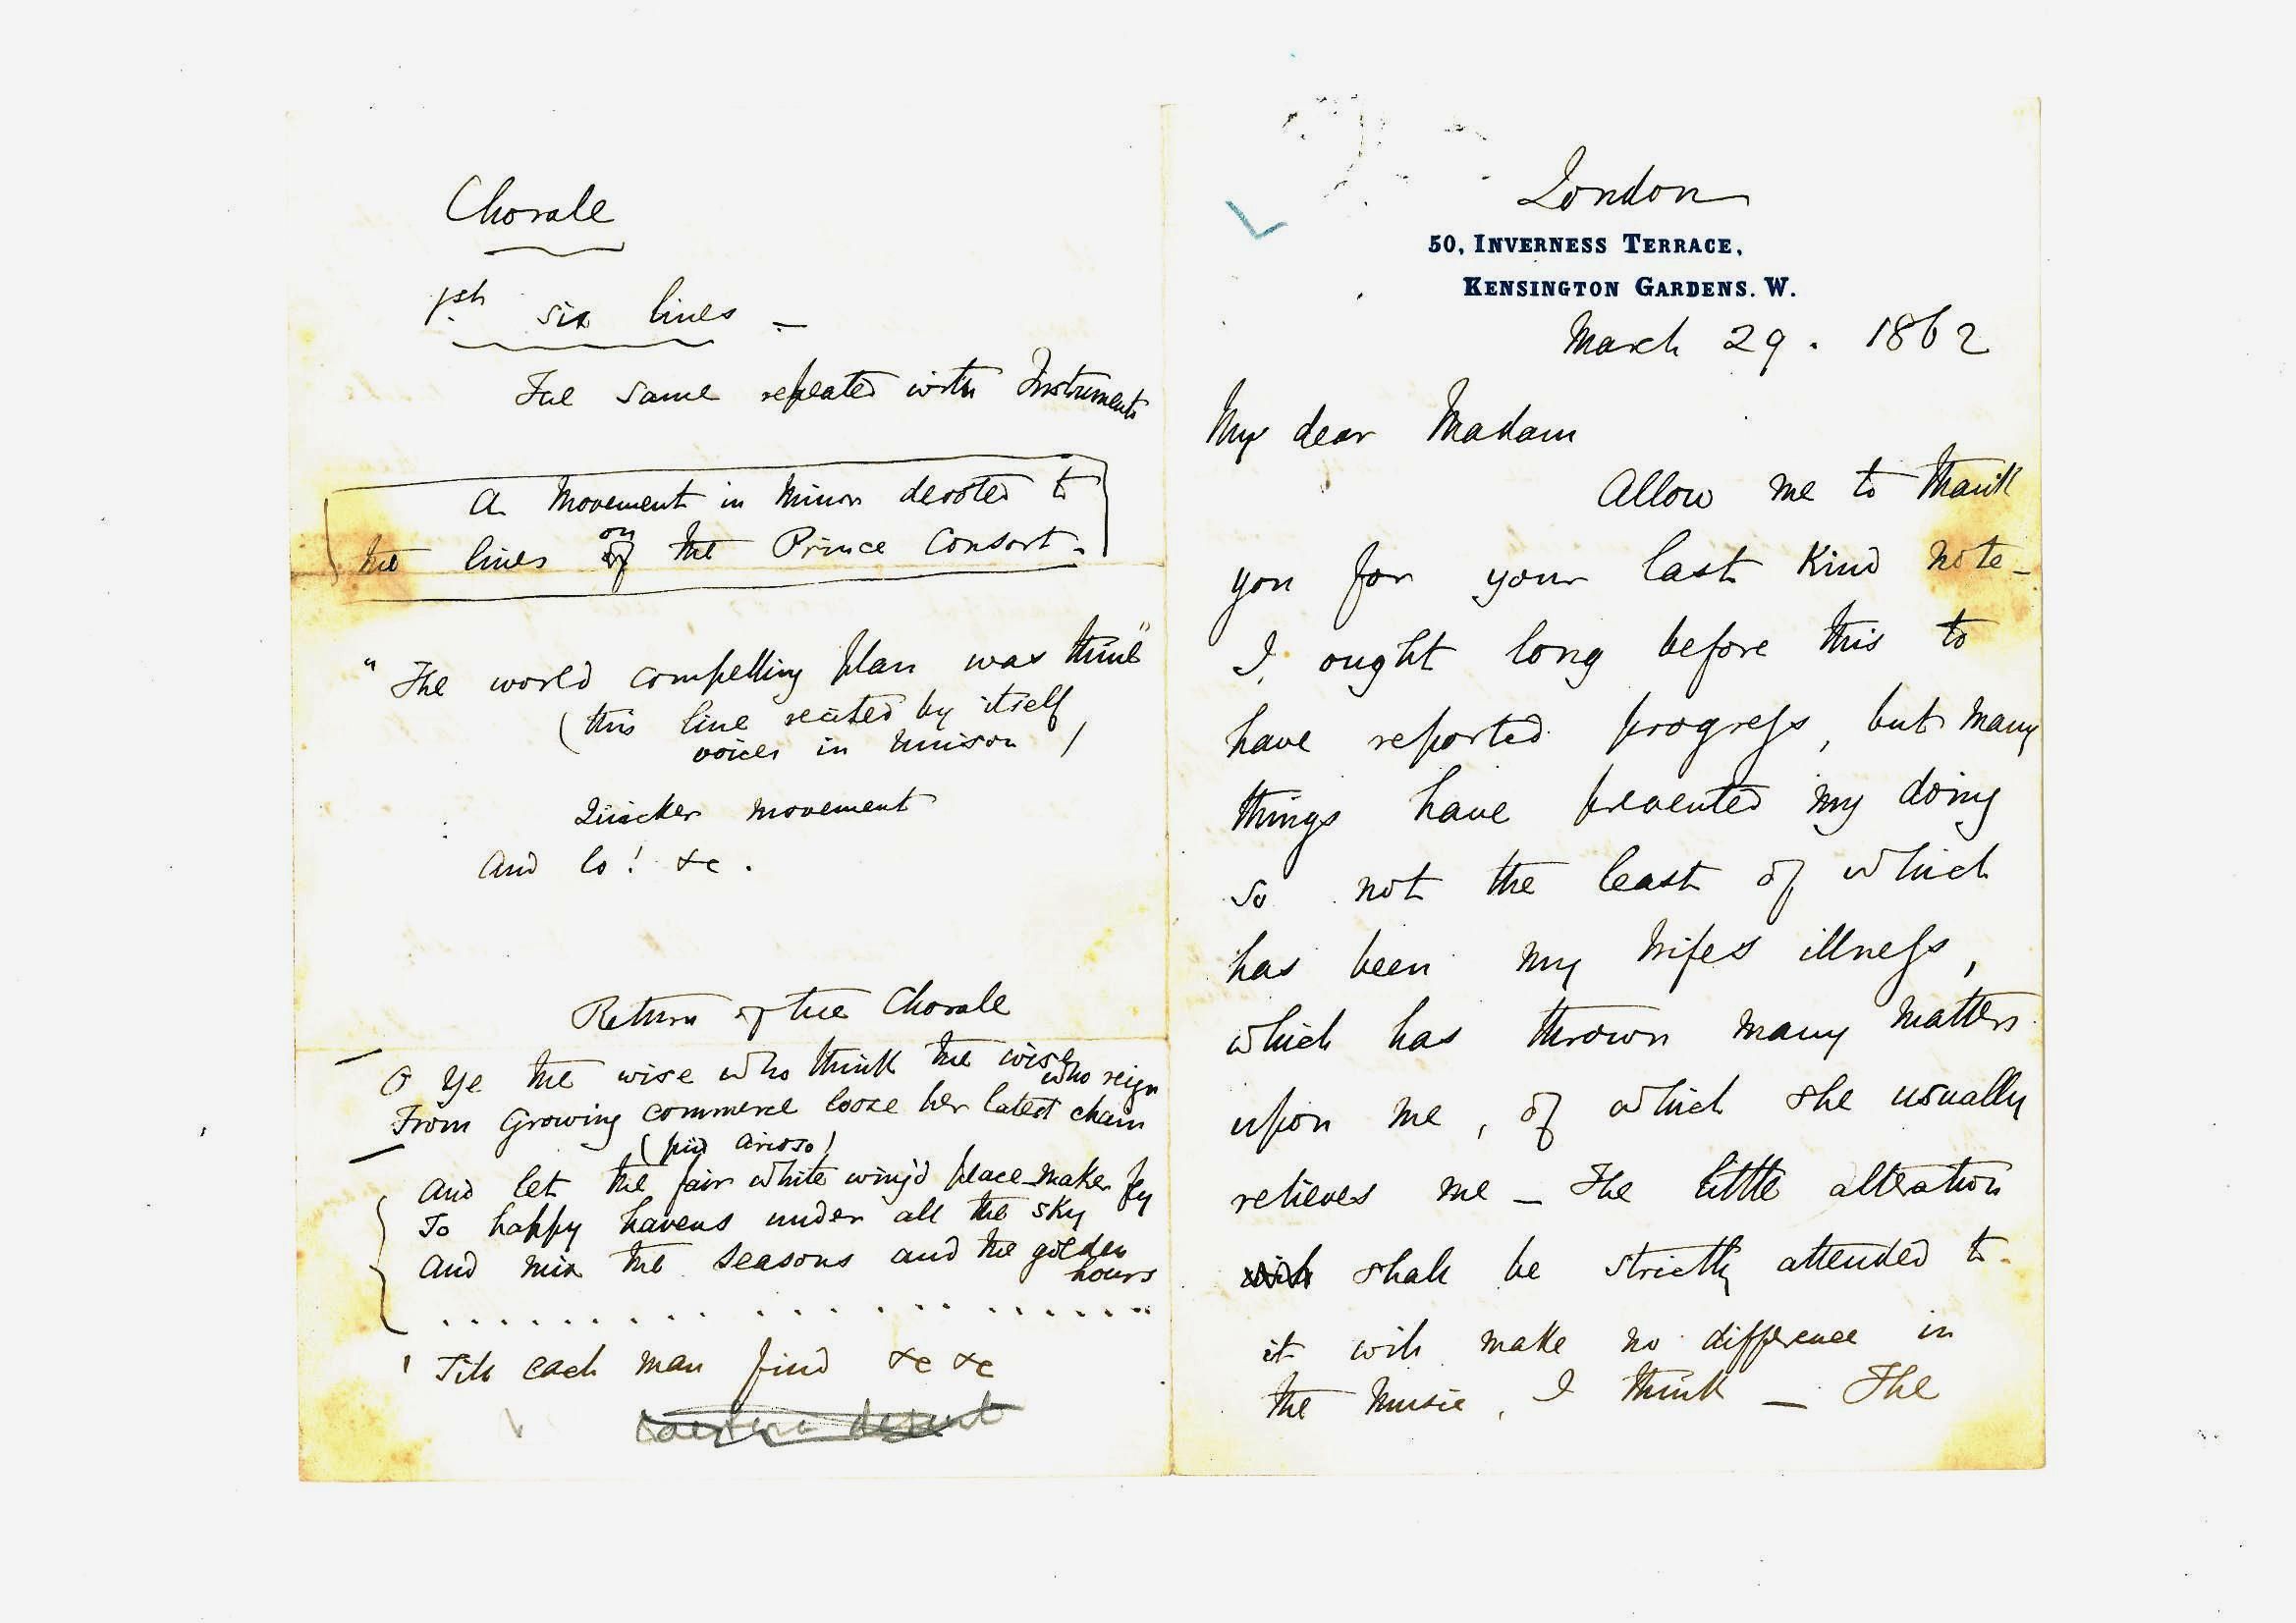 Chorale
1st six lines –
The same repeated with Instruments
A Movement in Minor devoted to
the lines on the Prince Consort.
"The world compelling plan was thine"
(this line recited by itself
voices in Unison)
Quicker movement
And lo! &c.
Return of the Chorale
O Ye the wise who think the wise who reign
From Growing commerce loose her latest chain
(più arioso)
And let the fair white wing'd peace-maker fly
To happy havens under all the sky
And mix the seasons and the golden
hours
. . . . . . . . . . . . . . . . . .
Till each man find &c &c
London
50, INVERNESS TERRACE,
KENSINGTON GARDENS. W.
March 29. 1862
My dear Madam
Allow me to thank
you for your last kind note –
I ought long before this to
have reported progress, but many
things have prevented my doing
so not the least of which
has been my wifes illness,
which has thrown many matters
upon me, of which she usually
relieves me – The little alteration
shall be strictly attended to –
it will make no difference in
the Music, I think – The